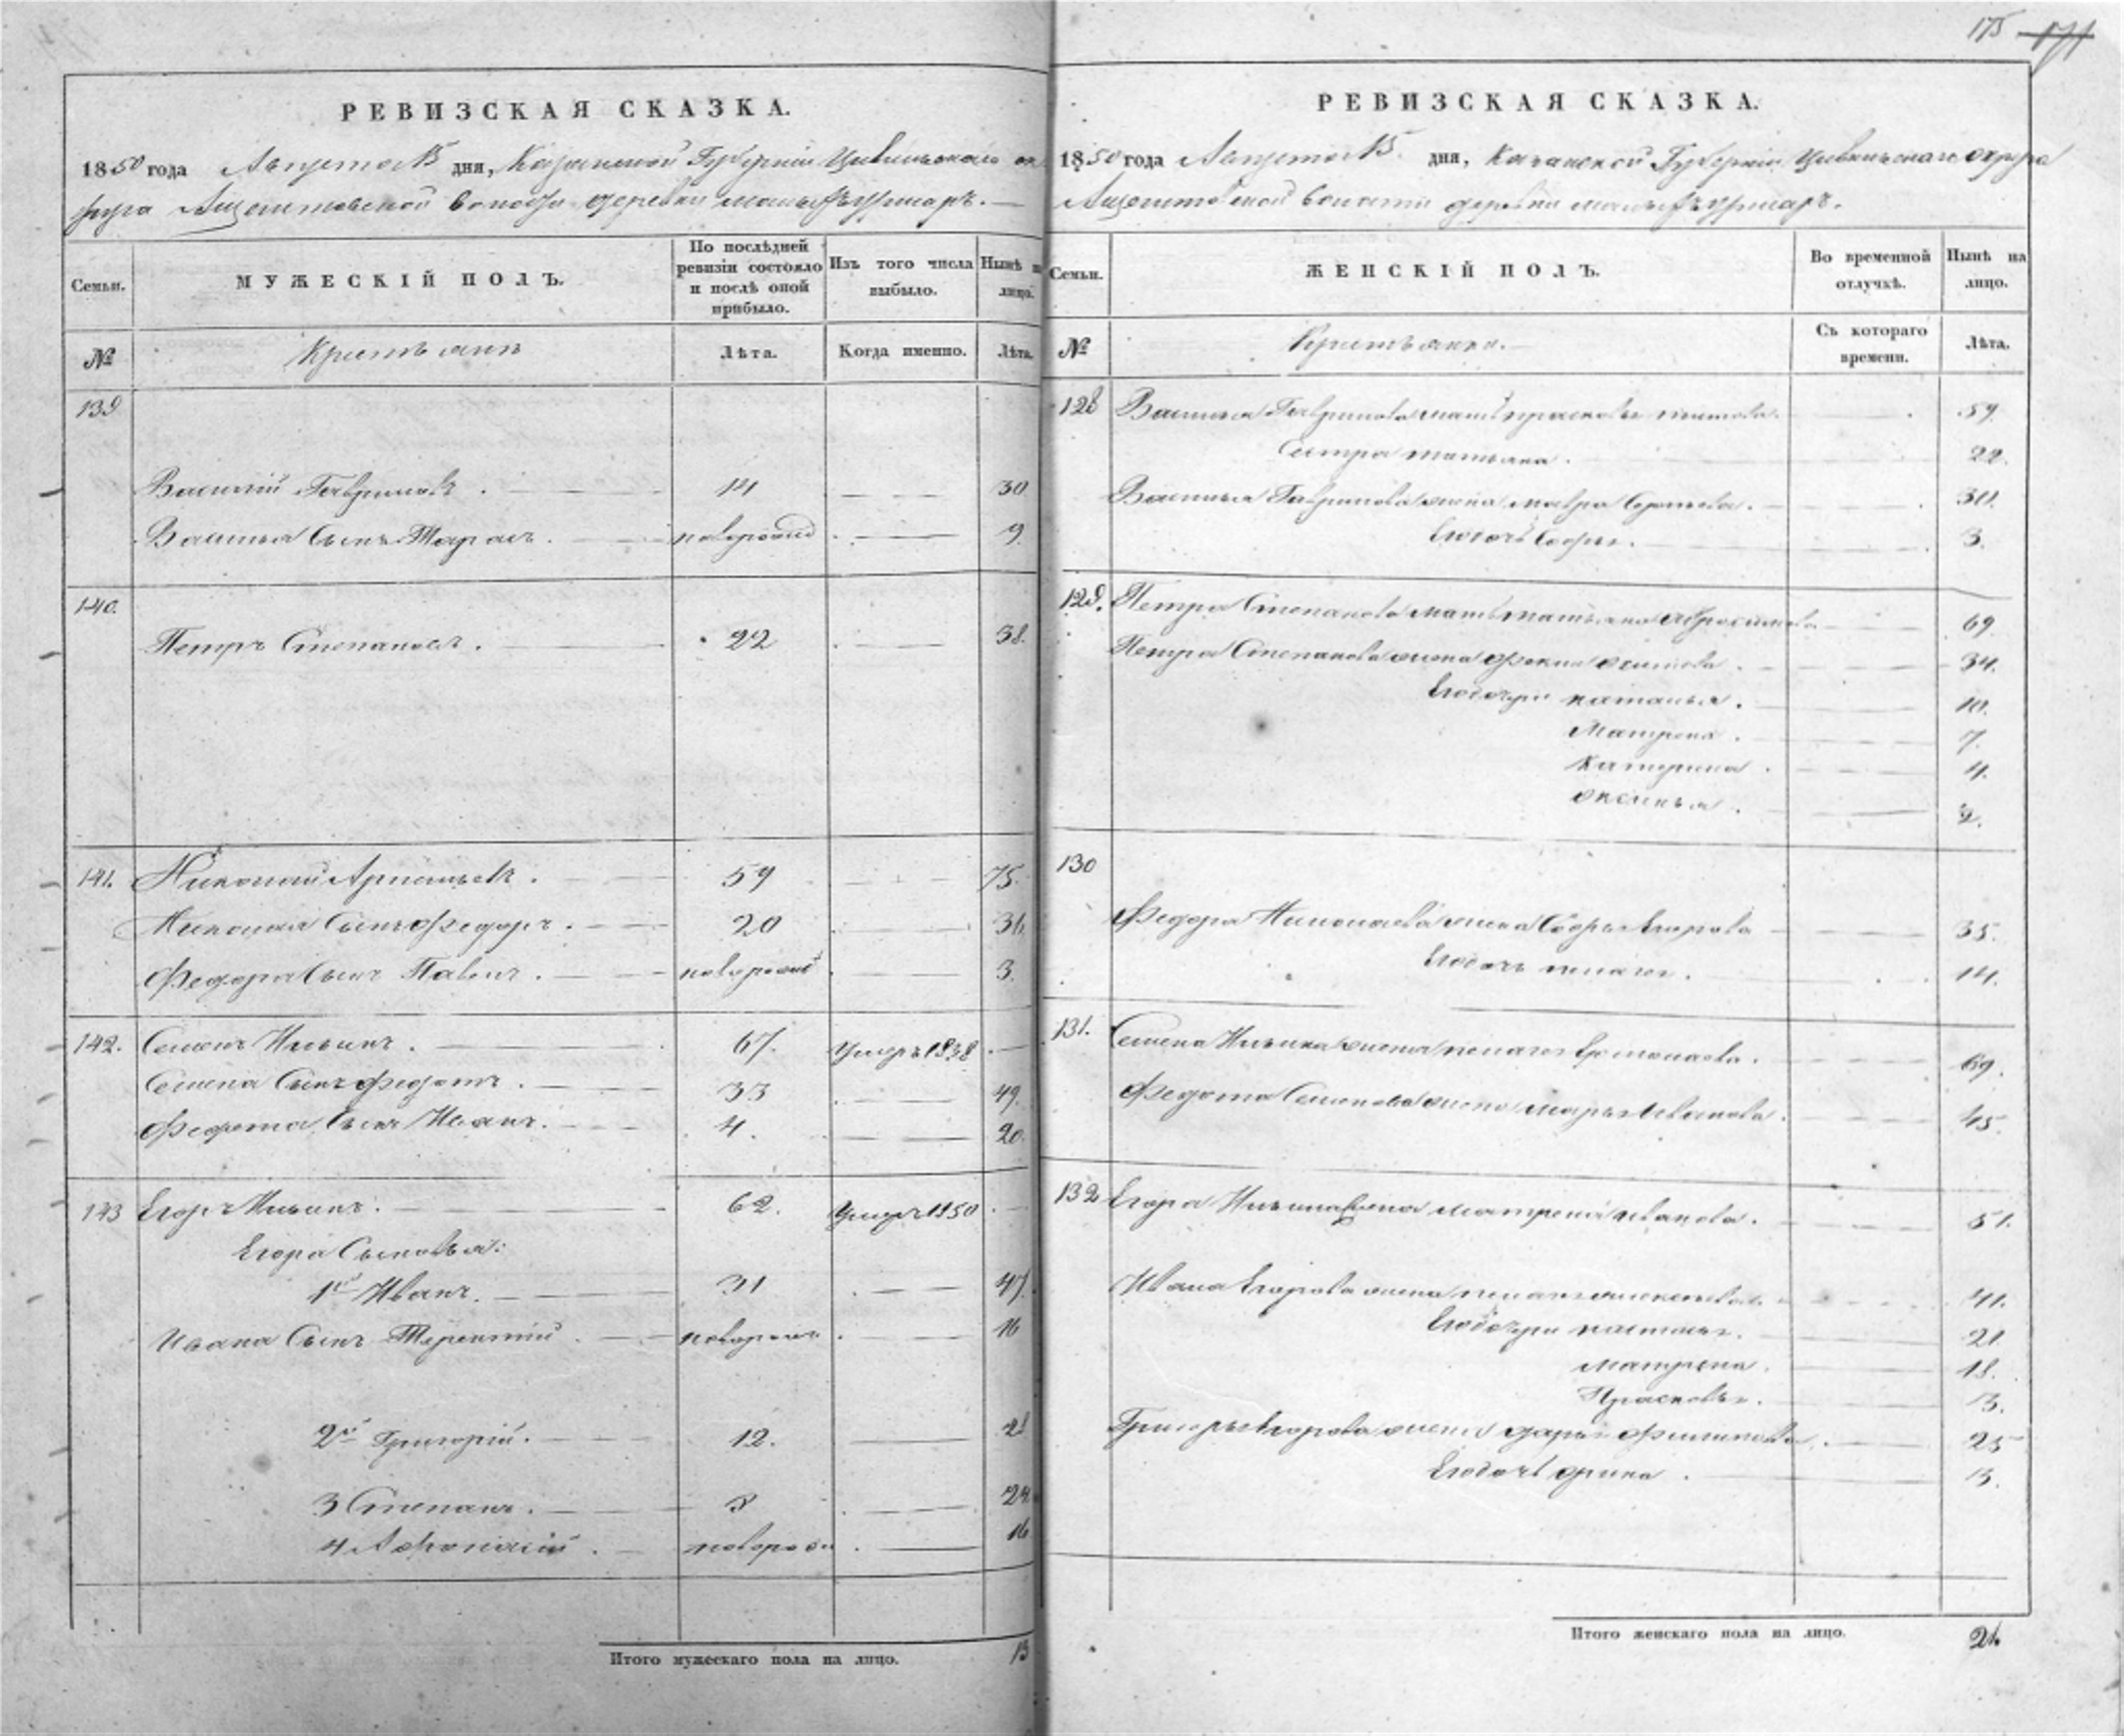 175 171
РЕВИЗСКАЯ СКАЗКА.
1850 года Августа 15 дня, Казанской Губерніи Цивильскаго ок
руга волости деревни
Семьи.
МУЖЕСКІЙ ПОЛЪ.
По послѣдней ревизіи состояло и послѣ оной прибыло.
Изъ того числа выбыло.
Нынѣ на лицо.
№
Крестьянъ
Лѣта.
Когда именно.
Лѣта.
139
Василій Гавриловъ. 14 30
Василья Сынъ Тарасъ. новорожд 9
140.
Петръ Степановъ. 22 38.
141. Николай 59 75.
Николая Сынъ Федоръ. 20 36
Федора Сынъ Павелъ. новорожд 3.
142. Семенъ Ильинъ. 67. Умеръ 1838
Семена Сынъ Федотъ. 33 49.
Федота Сынъ Иванъ. 4. 20.
143 Егоръ Ильинъ. 62. Умеръ 1850
Егора Сыновья:
1й Иванъ. 31 47.
Ивана Сынъ Терентій. новорож 16
2й Григорій. 12. 28
3 Степанъ. 8 24
4 Афонасій. новорож 16
Итого мужескаго пола на лицо. 13
РЕВИЗСКАЯ СКАЗКА.
1850 года Августа 15 дня, Казанской Губерніи Цивильскаго округа
волости деревни
Семьи.
ЖЕНСКІЙ ПОЛЪ.
Во временной отлучкѣ.
Нынѣ на лицо.
№
Крестьянки.
Съ котораго времени.
Лѣта.
128 Василья Гаврилова мать прасковья титова. 59.
Сестра татьяна. 22.
Василья Гаврилова жена мавра 30.
Егодочь Софья. 3.
129. Петра Степанова мать татьяна 69.
Петра Степанова жена фекла 34.
Егодочери наталья. 10.
Матрена. 7.
Катерина. 4.
2.
130
Федора Николаева жена Софья Егорова 35.
Егодочь пелагея. 14.
131. Семена Ильина жена пелагея 69.
Федота Семенова жена марья Иванова. 45.
132 Егора Ильина жена матрена иванова. 51.
Ивана Егорова жена пелагея 41.
Егодочери настасья. 21
матрена. 18.
Прасковья. 13.
Григорья Егорова жена дарья филипова. 25
Егодочь 3.
Итого женскаго пола на лицо. 21.